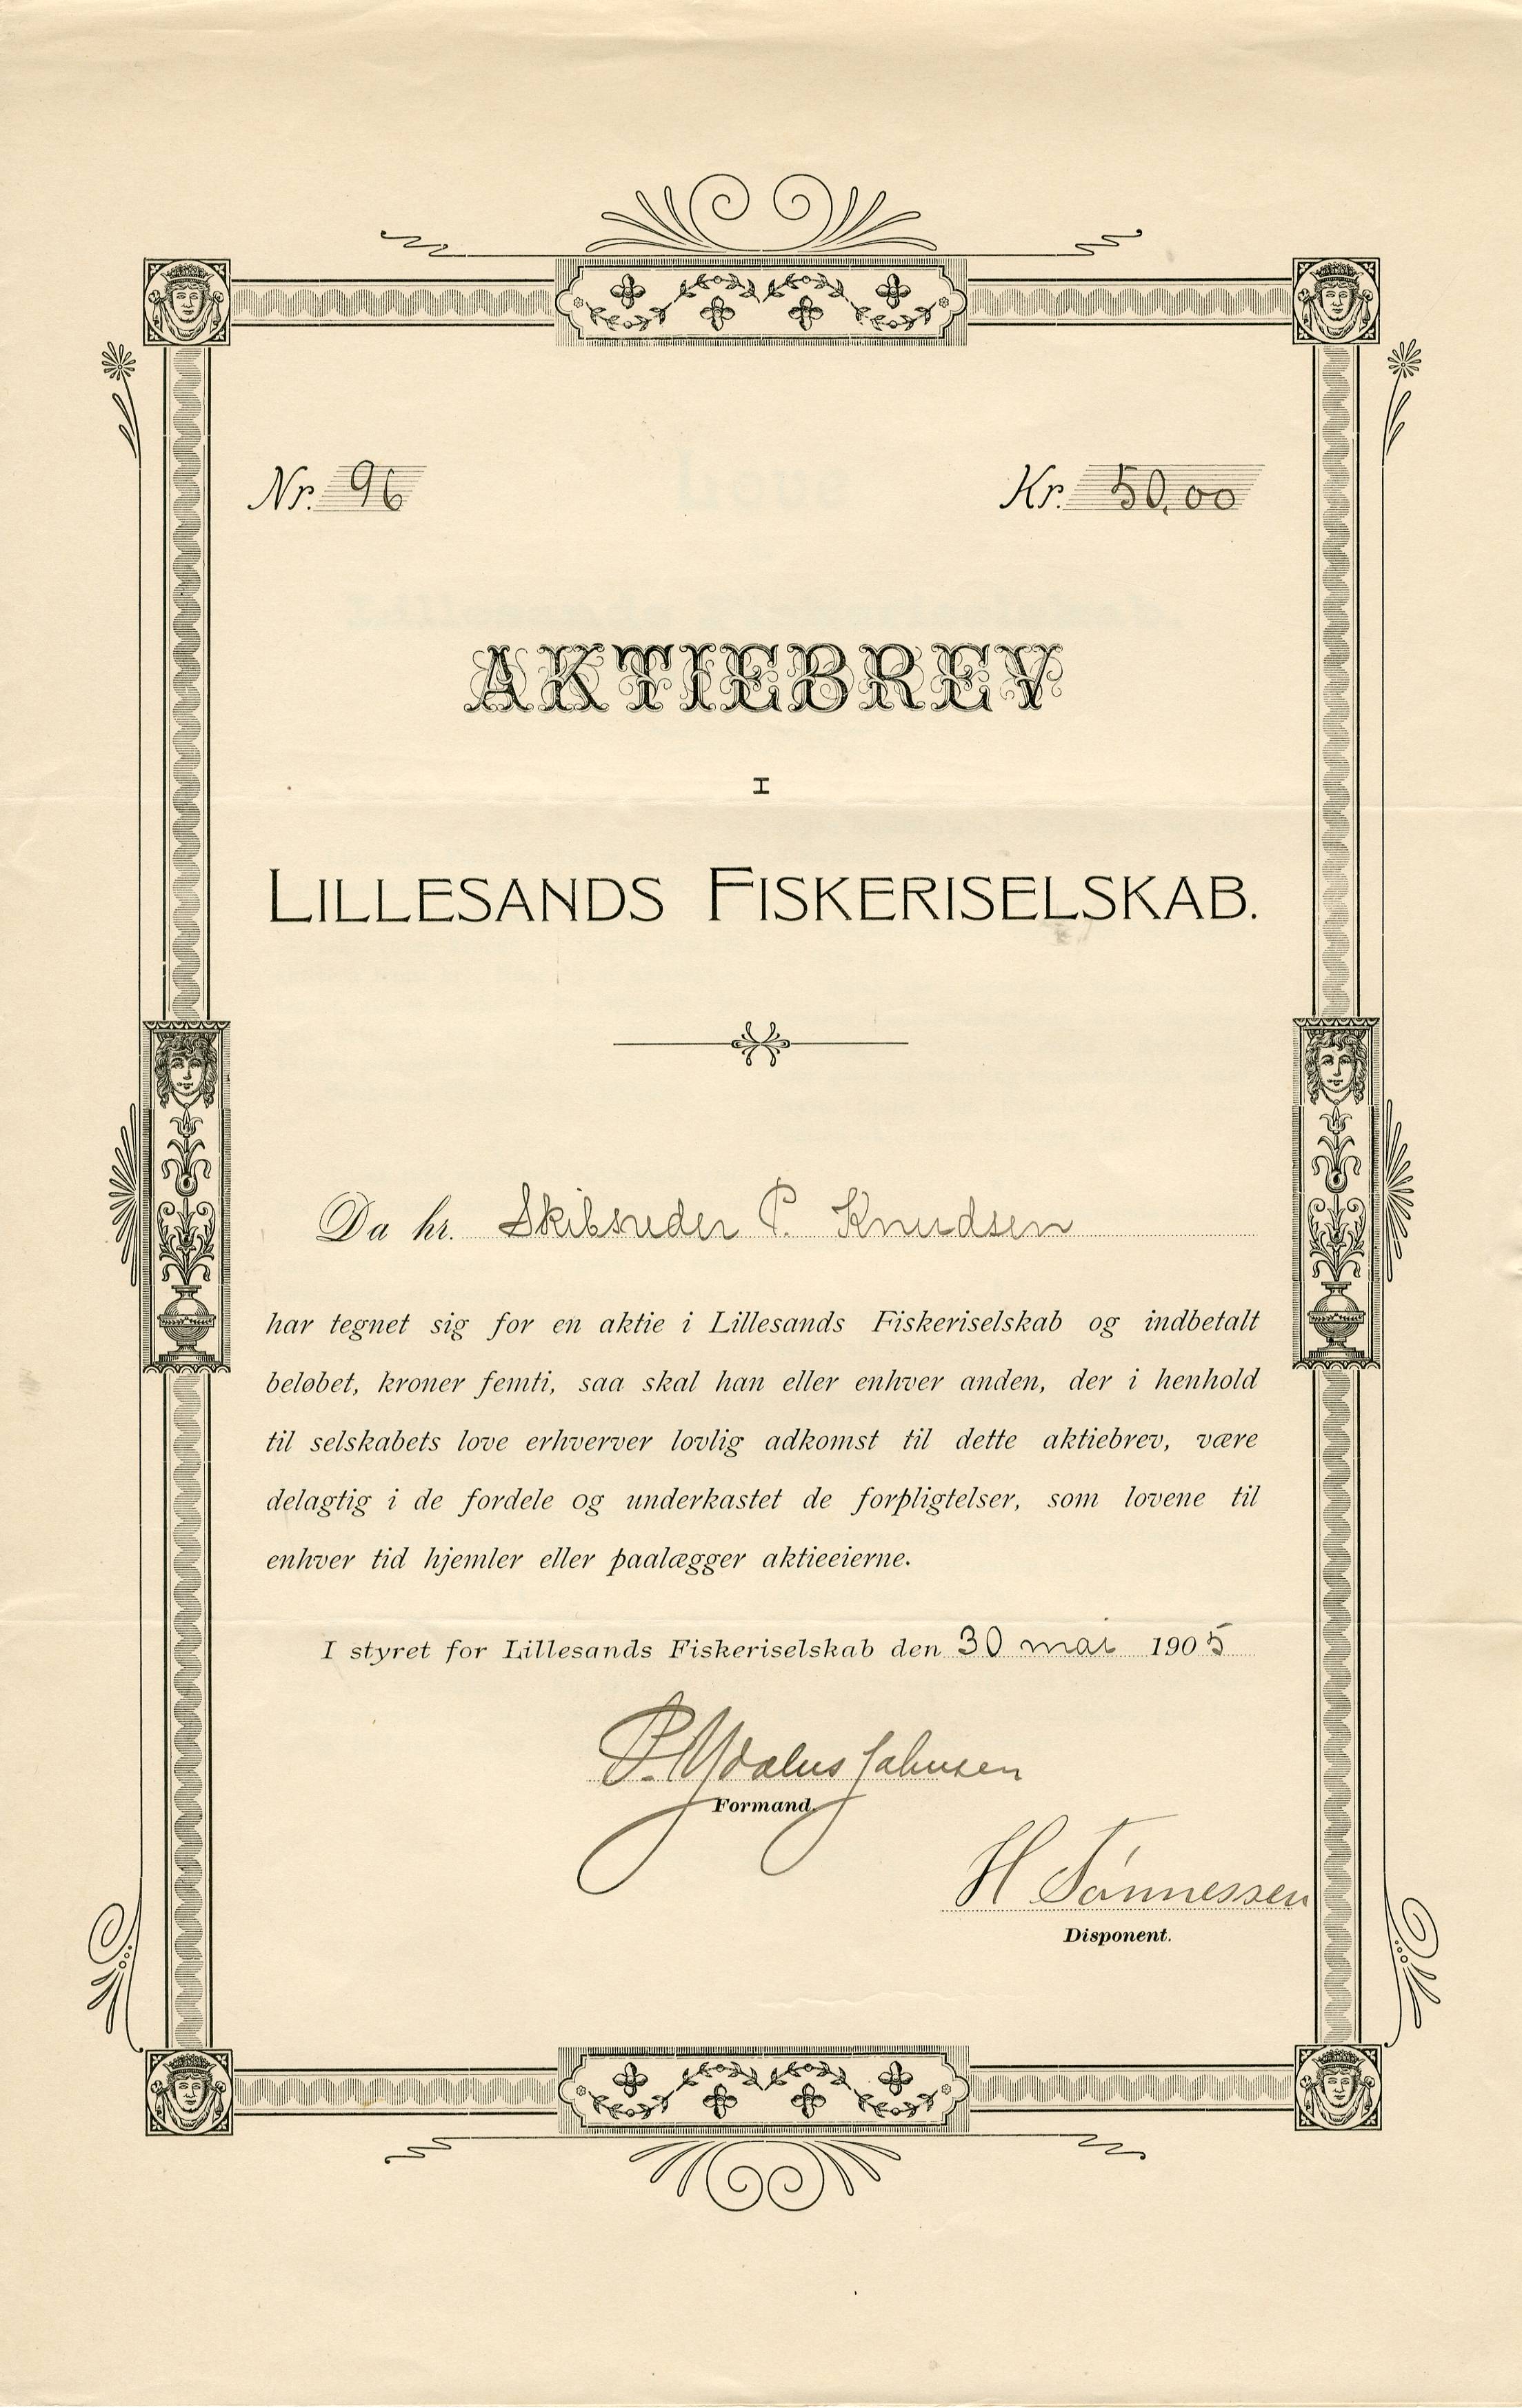 Nr. 96 Kr. 50,00
AKTIEBREV
I
LILLESANDS FISKERISELSKAB.
Da hr. Skibsreder P. Knudsen
har tegnet sig for en aktie i Lillesands Fiskeriselskab og indbetalt
beløbet, kroner femti, saa skal han eller enhver anden, der i henhold
til selskabets love erhverver lovlig adkomst til dette aktiebrev, være
delagtig i de fordele og underkastet de forpligtelser, som lovene til
enhver tid hjemler eller paalægger aktieeierne.
I styret for Lillesands Fiskeriselskab den 30 mai 1905
P. Johnsen
Formand.
H Tönnessen
Disponent.